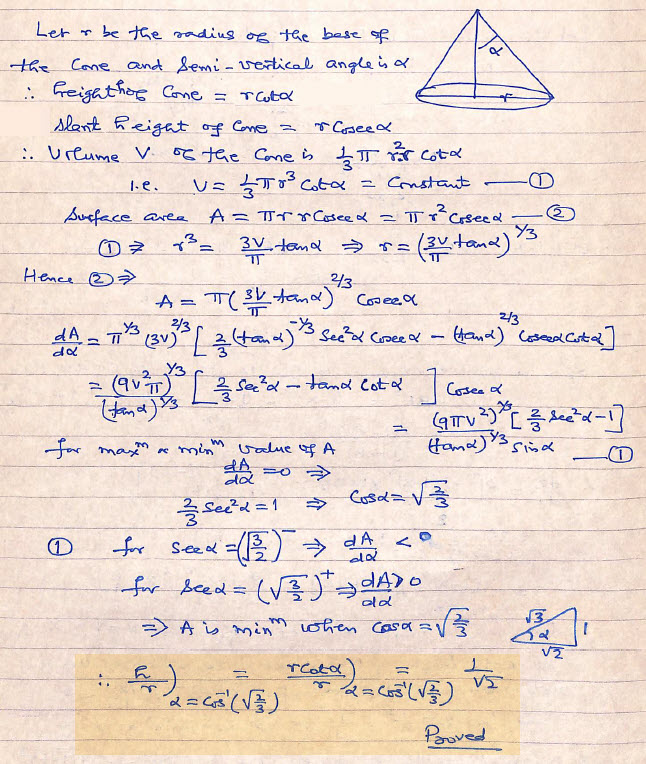 Let r be the radius of the base of
the Cone and Semi-vertical angle is α
∴ height of Cone = r cot α
Slant height of Cone = r Cosec α
∴ Volume V. of the Cone is 1/3 π r².r Cot α
i.e. V = 1/3 π r³ Cot α = Constant — ①
Surface area A = π r r Cosec α = π r² Cosec α — ②
① ⇒ r³ = 3V/π tan α ⇒ r = (3V/π tan α)^1/3
Hence ② ⇒
A = π (3V/π tan α)^2/3 Cosec α
dA/dα = π^1/3 (3V)^2/3 [2/3 (tan α)^-1/3 Sec² α Cosec α − (tan α)^2/3 Cosec α Cot α]
= (9V² π)^1/3/(tan α)^1/3 [2/3 Sec² α − tan α Cot α] Cosec α
= (9πV²)^1/3 [2/3 Sec² α − 1]/(tan α)^1/3 Sin α — ①
for max^m or min^m value of A
dA/dα = 0 ⇒
2/3 Sec² α = 1 ⇒ Cos α = √2/3
① for Sec α = (√3/2)^− ⇒ dA/dα < 0
for Sec α = (√3/2)^+ ⇒ dA/dα > 0
⇒ A is min^m when Cos α = √2/3
∴ h/r)α = Cos^-1(√2/3) = r Cot α/r)α = Cos^-1(√2/3) = 1/√2
Proved
α
r
√3
α
1
√2